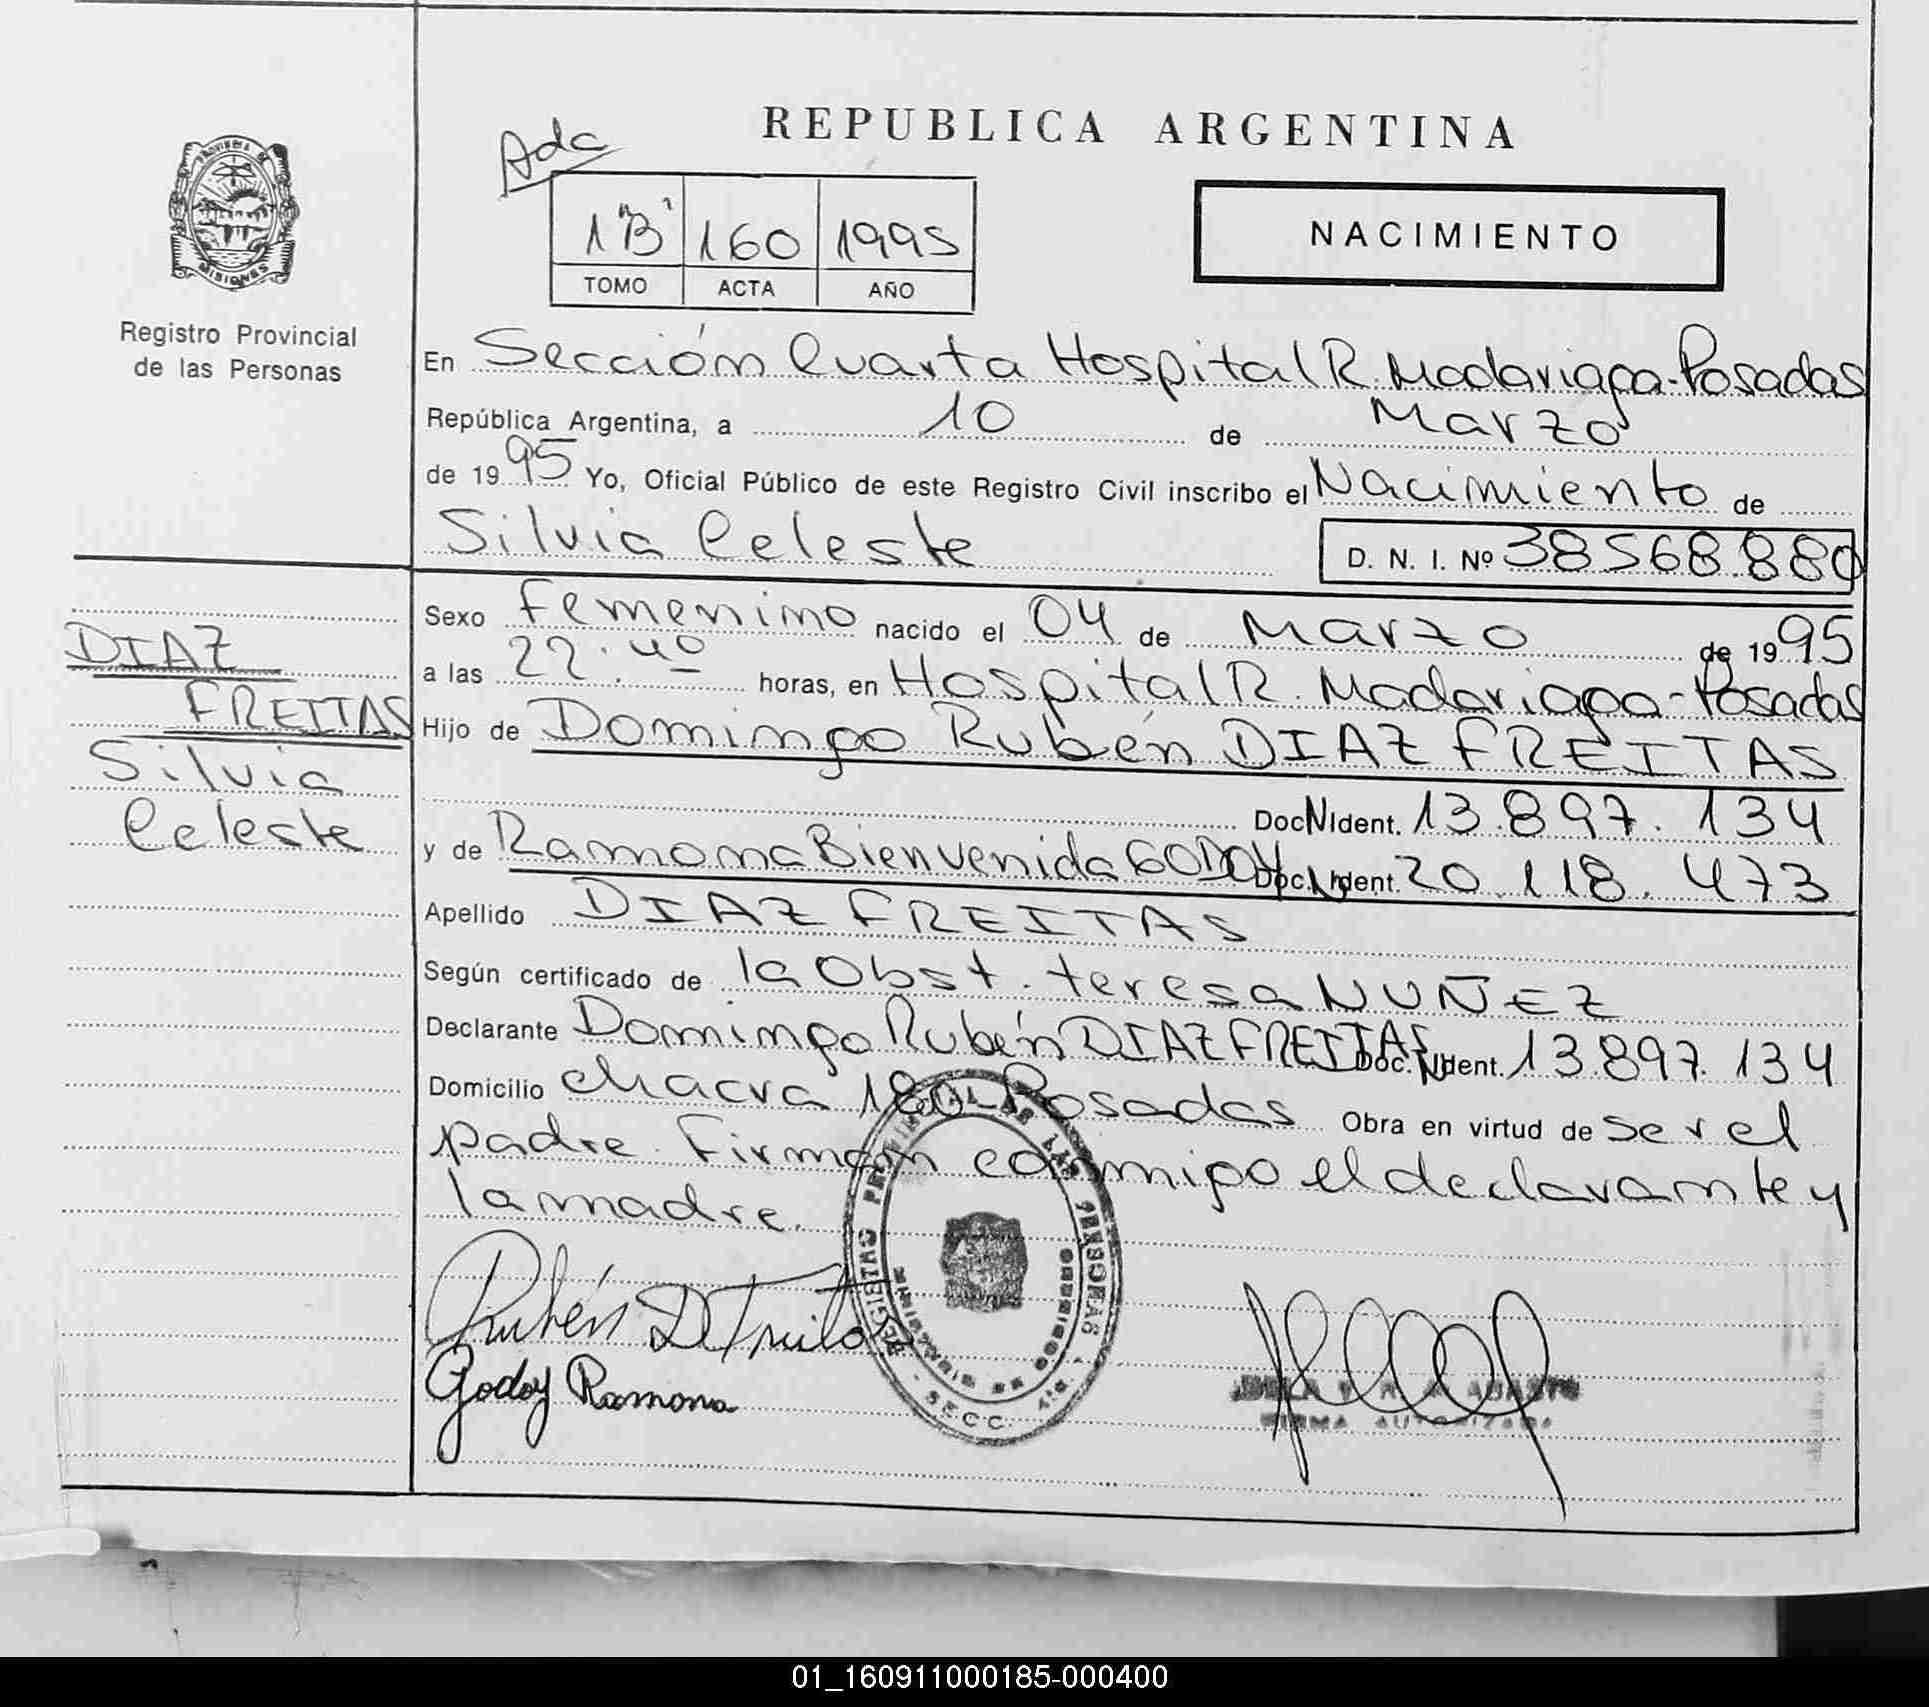 REPUBLICA ARGENTINA
Adc
1"B" 160 1995
TOMO ACTA AÑO
NACIMIENTO
PROVINCIA DE
MISIONES
Registro Provincial
de las Personas
En Sección Cuarta Hospital R. Madariaga-Posadas
República Argentina, a 10 de Marzo
de 1995 Yo, Oficial Público de este Registro Civil inscribo el Nacimiento de
Silvia Celeste D. N. I. Nº 38568.880
Sexo femenino nacido el 04 de Marzo de 1995
a las 22:40 horas, en Hospital R. Madariaga-Posadas
Hijo de Domingo Rubén DIAZ FREITAS
Doc N Ident. 13.897.134
y de Ramona Bienvenida GODOY Doc. N Ident. 20.118.473
Apellido DIAZ FREITAS
Según certificado de la Obst. teresa NUÑEZ
Declarante Domingo Rubén DIAZ FREITAS Doc. N Ident. 13.897.134
Domicilio chacra 180-Posadas Obra en virtud de ser el
padre. Firman conmigo el declarante y
la madre.
DIAZ
FREITAS
Silvia
Celeste
Rubén D Freitas
Godoy Ramona
REGISTRO PROVINCIAL DE LAS PERSONAS
SECC. 4ta.
FIRMA AUTORIZADA
01_160911000185-000400